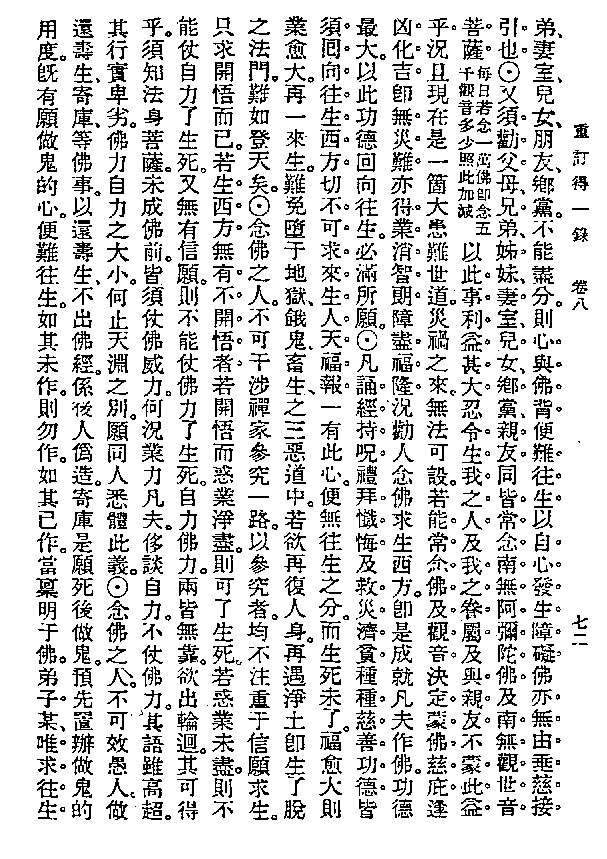 重訂得一錄 卷八 七二
弟、妻室、兒女、朋友、鄉黨。不能盡分。則心與佛背。便難往生。以自心發生障礙。佛亦無由垂慈接
引也。⊙又須勸父母、兄弟、姊妹、妻室、兒女、鄉黨、親友、同皆常念南無阿彌陀佛。及南無觀世音
菩薩。每日若念一萬佛即念五千觀音多少照此加減以此事利益甚大。忍令生我之人。及我之眷屬。及與親友。不蒙此益
乎。況且現在是一箇大患難世道。災禍之來。無法可設。若能常念佛及觀音。決定蒙佛慈庇。逢
凶化吉。即無災難。亦得業消智朗。障盡福隆。況勸人念佛求生西方。即是成就凡夫作佛。功德
最大。以此功德回向往生。必滿所願。⊙凡誦經持呪。禮拜懺悔。及救災濟貧。種種慈善功德。皆
須囘向往生西方。切不可求來生人天福報。一有此心。便無往生之分。而生死未了。福愈大則
業愈大。再一來生。難免墮于地獄、餓鬼、畜生、之三惡道中。若欲再復人身。再遇淨土即生了脫
之法門。難如登天矣。⊙念佛之人。不可干涉禪家參究一路。以參究者。均不注重于信願求生。
只求開悟而已。若生西方。無有不開悟者。若開悟而惑業淨盡。則可了生死。若惑業未盡。則不
能仗自力了生死。又無有信願。則不能仗佛力了生死。自力佛力。兩皆無靠。欲出輪迴。其可得
乎。須知法身菩薩。未成佛前。皆須仗佛威力。何況業力凡夫。侈談自力。不仗佛力。其語雖高超。
其行實卑劣。佛力自力之大小。何止天淵之別。願同人悉體此義。⊙念佛之人。不可效愚人、做
還壽生、寄庫、等佛事。以還壽生、不出佛經。係後人僞造。寄庫是願死後做鬼。預先置辦做鬼的
用度。旣有願做鬼的心。便難往生。如其未作。則勿作。如其已作。當稟明于佛。弟子某、唯求往生。